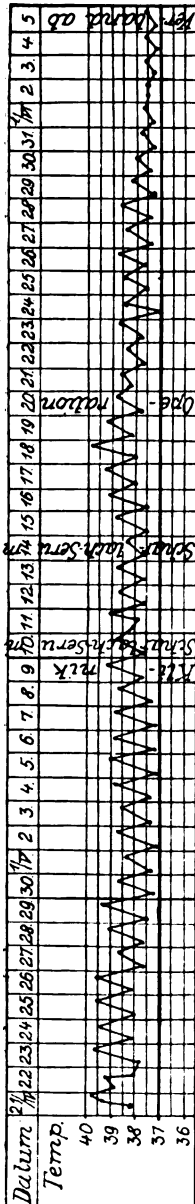 Datum 21./III 22 23 24 25 26 27. 28. 29 30 1/IV 2 3 4. 5. 6. 7. 8. 9 10. 11. 12. 13. 14 15. 16. 17. 18 19 20 21. 22. 23. 24 25. 26 27. 28 29. 30. 31. 1/VI 2 3. 4. 5
Temp.
40
39
38
37
36
Kli-
nik
Schar-
lach-Serum
Schar-
lach-Serum
Ope-
ration
Ver-
band ab